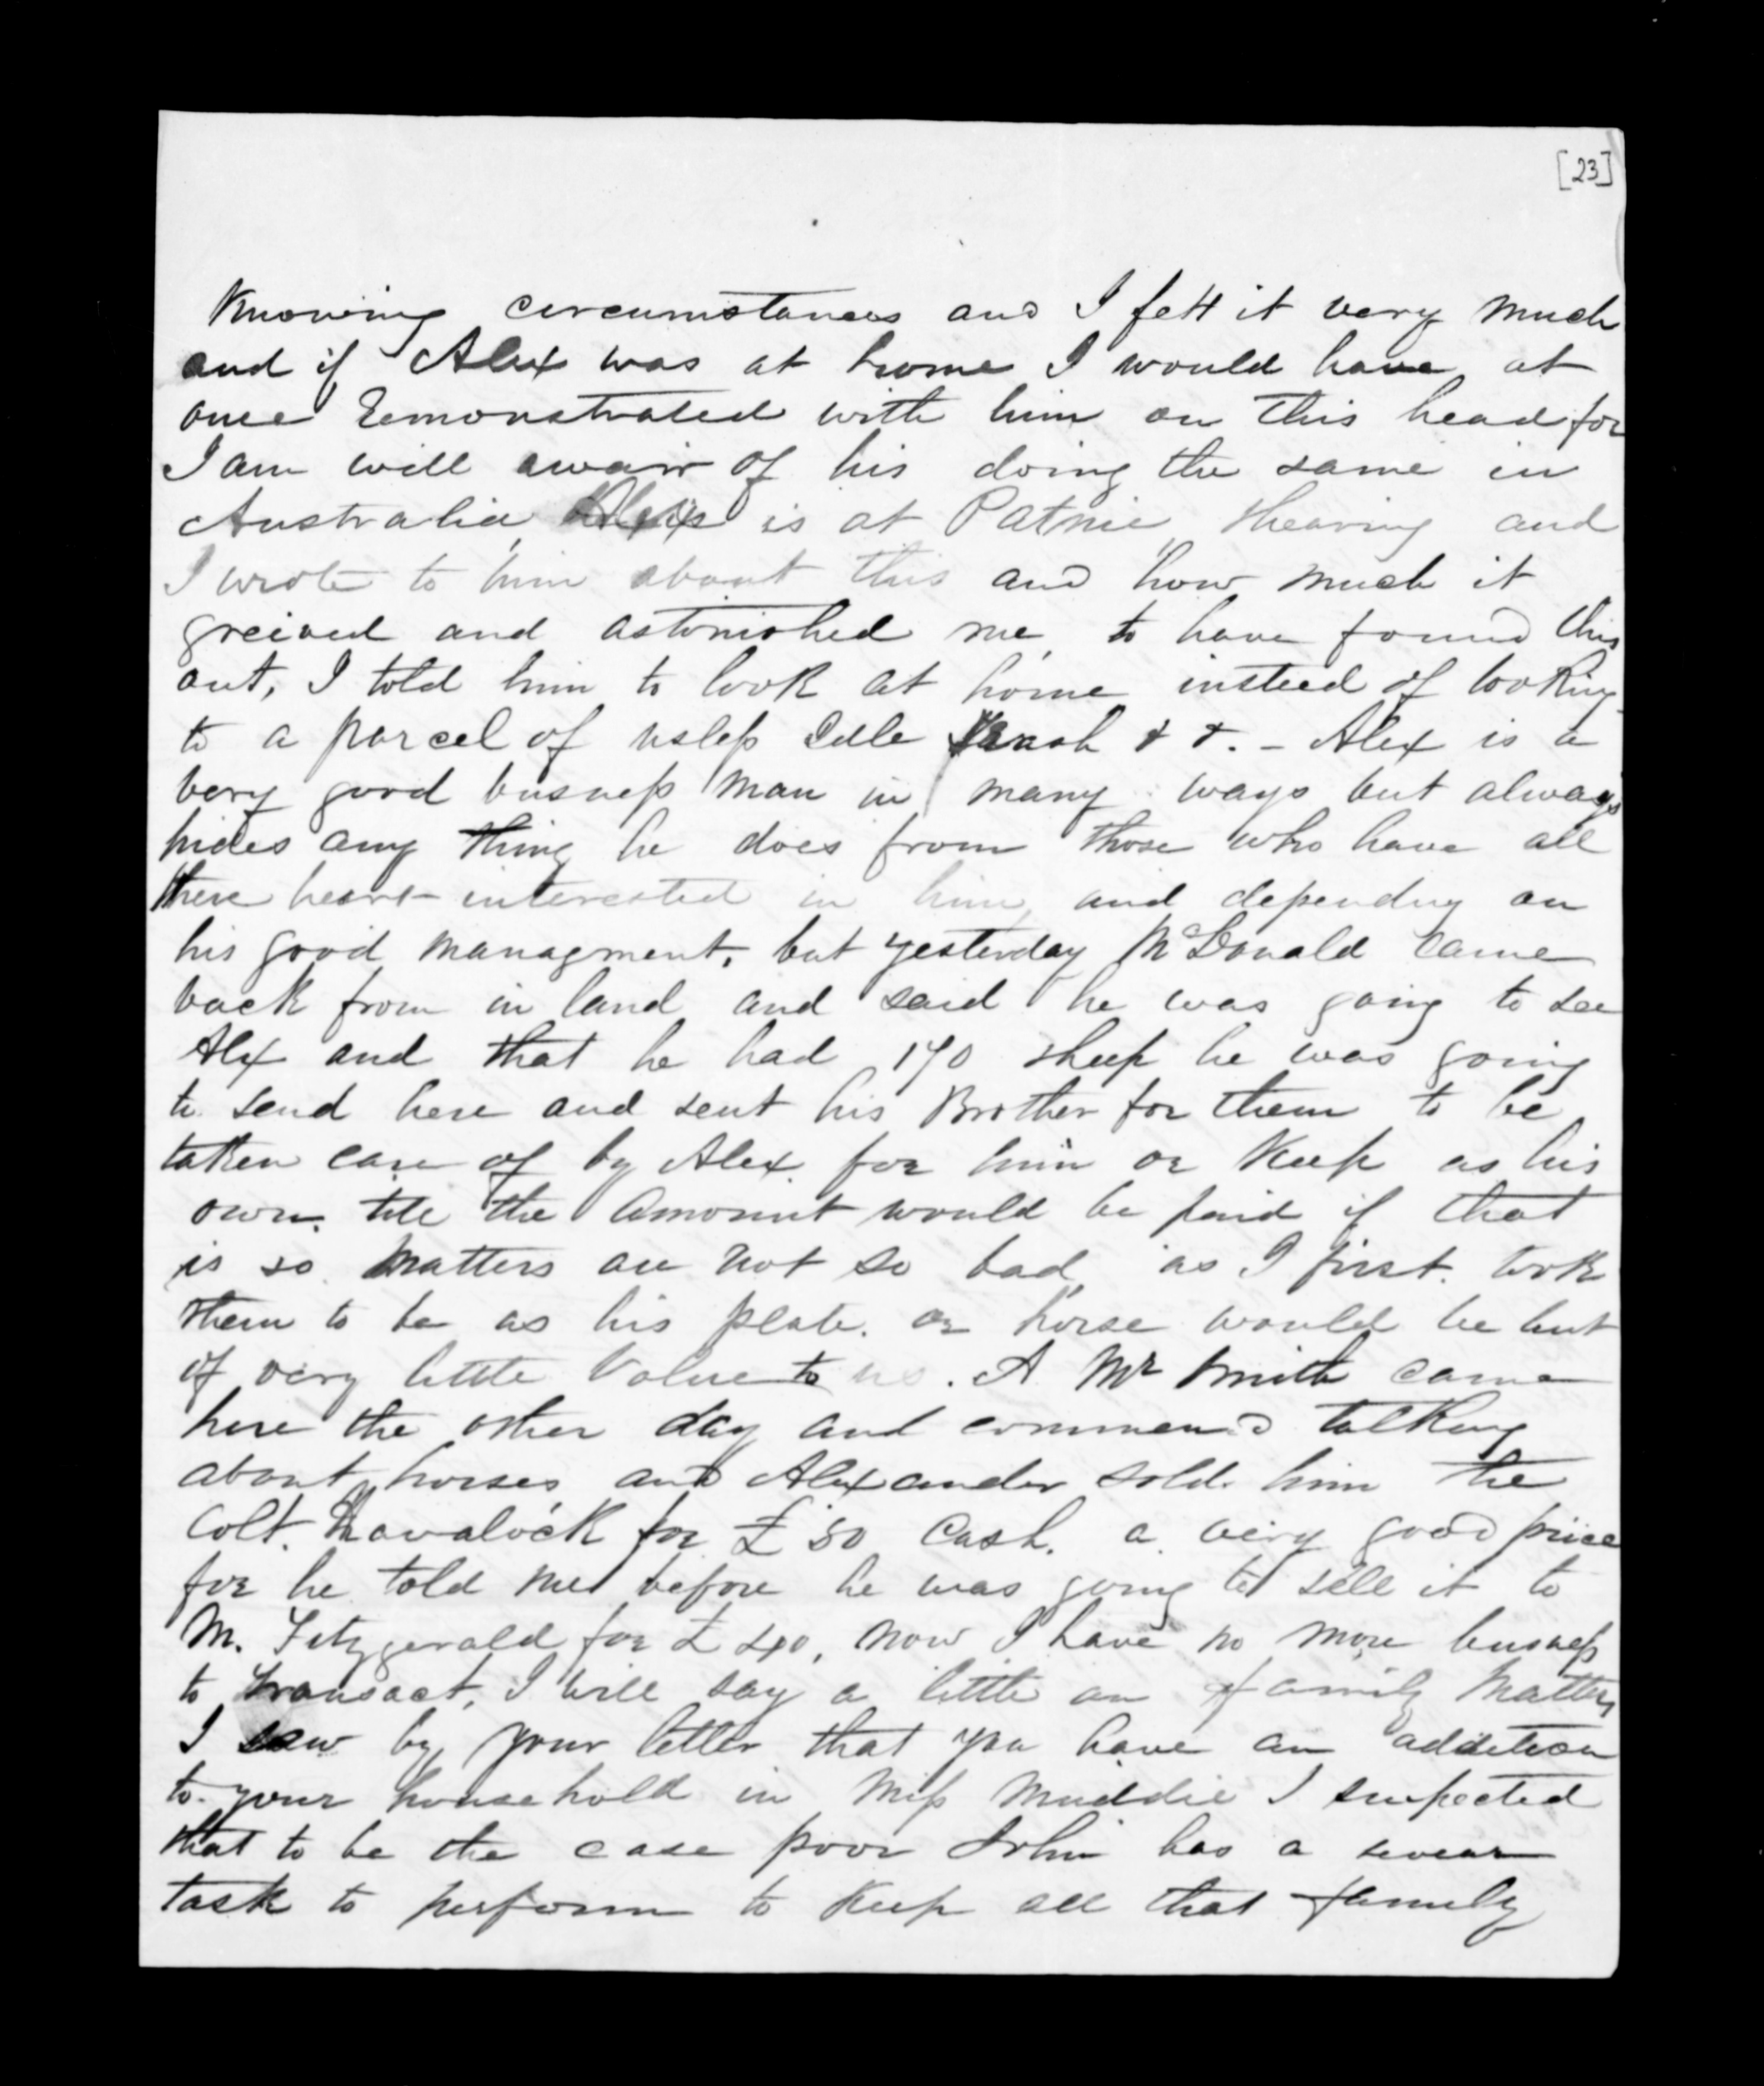 [23]
Knowing circumstances and I felt it very much
and if Alex was at home I would have at
once remonstrated with him on this head for
I am will awair of his doing the same in
Australia, Alex is at Patnie, shearing and
I wrote to him about this and how much it
greived and astonished me, to have found this
out, I told him to look at home instead of looking
to a parcel of usless Idle trash & &. - Alex is a
very good busness man in many ways but always
hides any thing he does from those who have all
there heart interested in him, and dependng on
his good managment, but yesterday McDonald came
back from in land and said he was going to see
Alex and that he had 170 sheep he was going
to send here and sent his Brother for them to be
taken care of by Alex for him or Keep as his
own. till the Amount would be paid if that
is so matters are not so bad, as I first took
them to be as his plate. or horse would be but
of very little Value to us. A Mr Smith came
here the other day and commenc'd talking
about horses and Alexander sold him the
Colt. Havalock for £50 Cash. a very good price
for he told me before he was going to sell it to
M. Fitzgerald for £40, now I have no more busness
to transact, I will say a little on family Matters
I saw by your letter that you have an addition
to your household in Miss Muddie I suspected
that to be the case poor John has a sevear
task to perform to Keep all that family